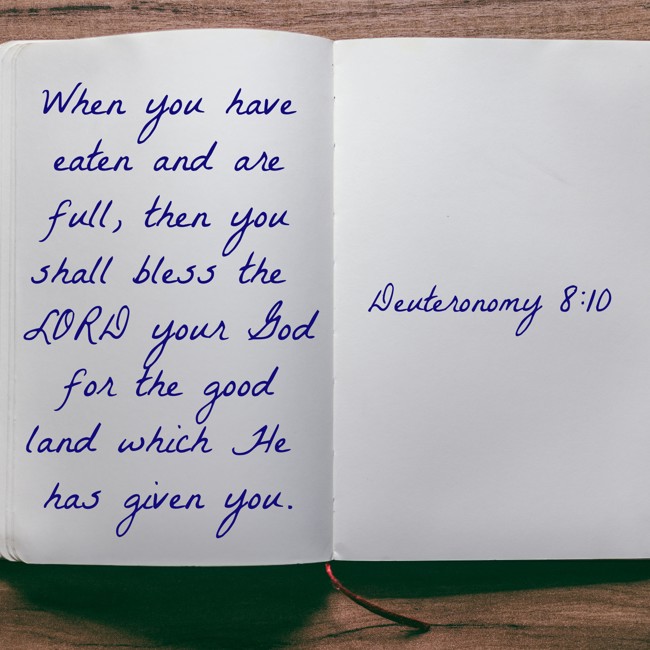 When you have
eaten and are
full, then you
shall bless the
LORD your God
for the good
land which He
has given you.
Deuteronomy 8:10